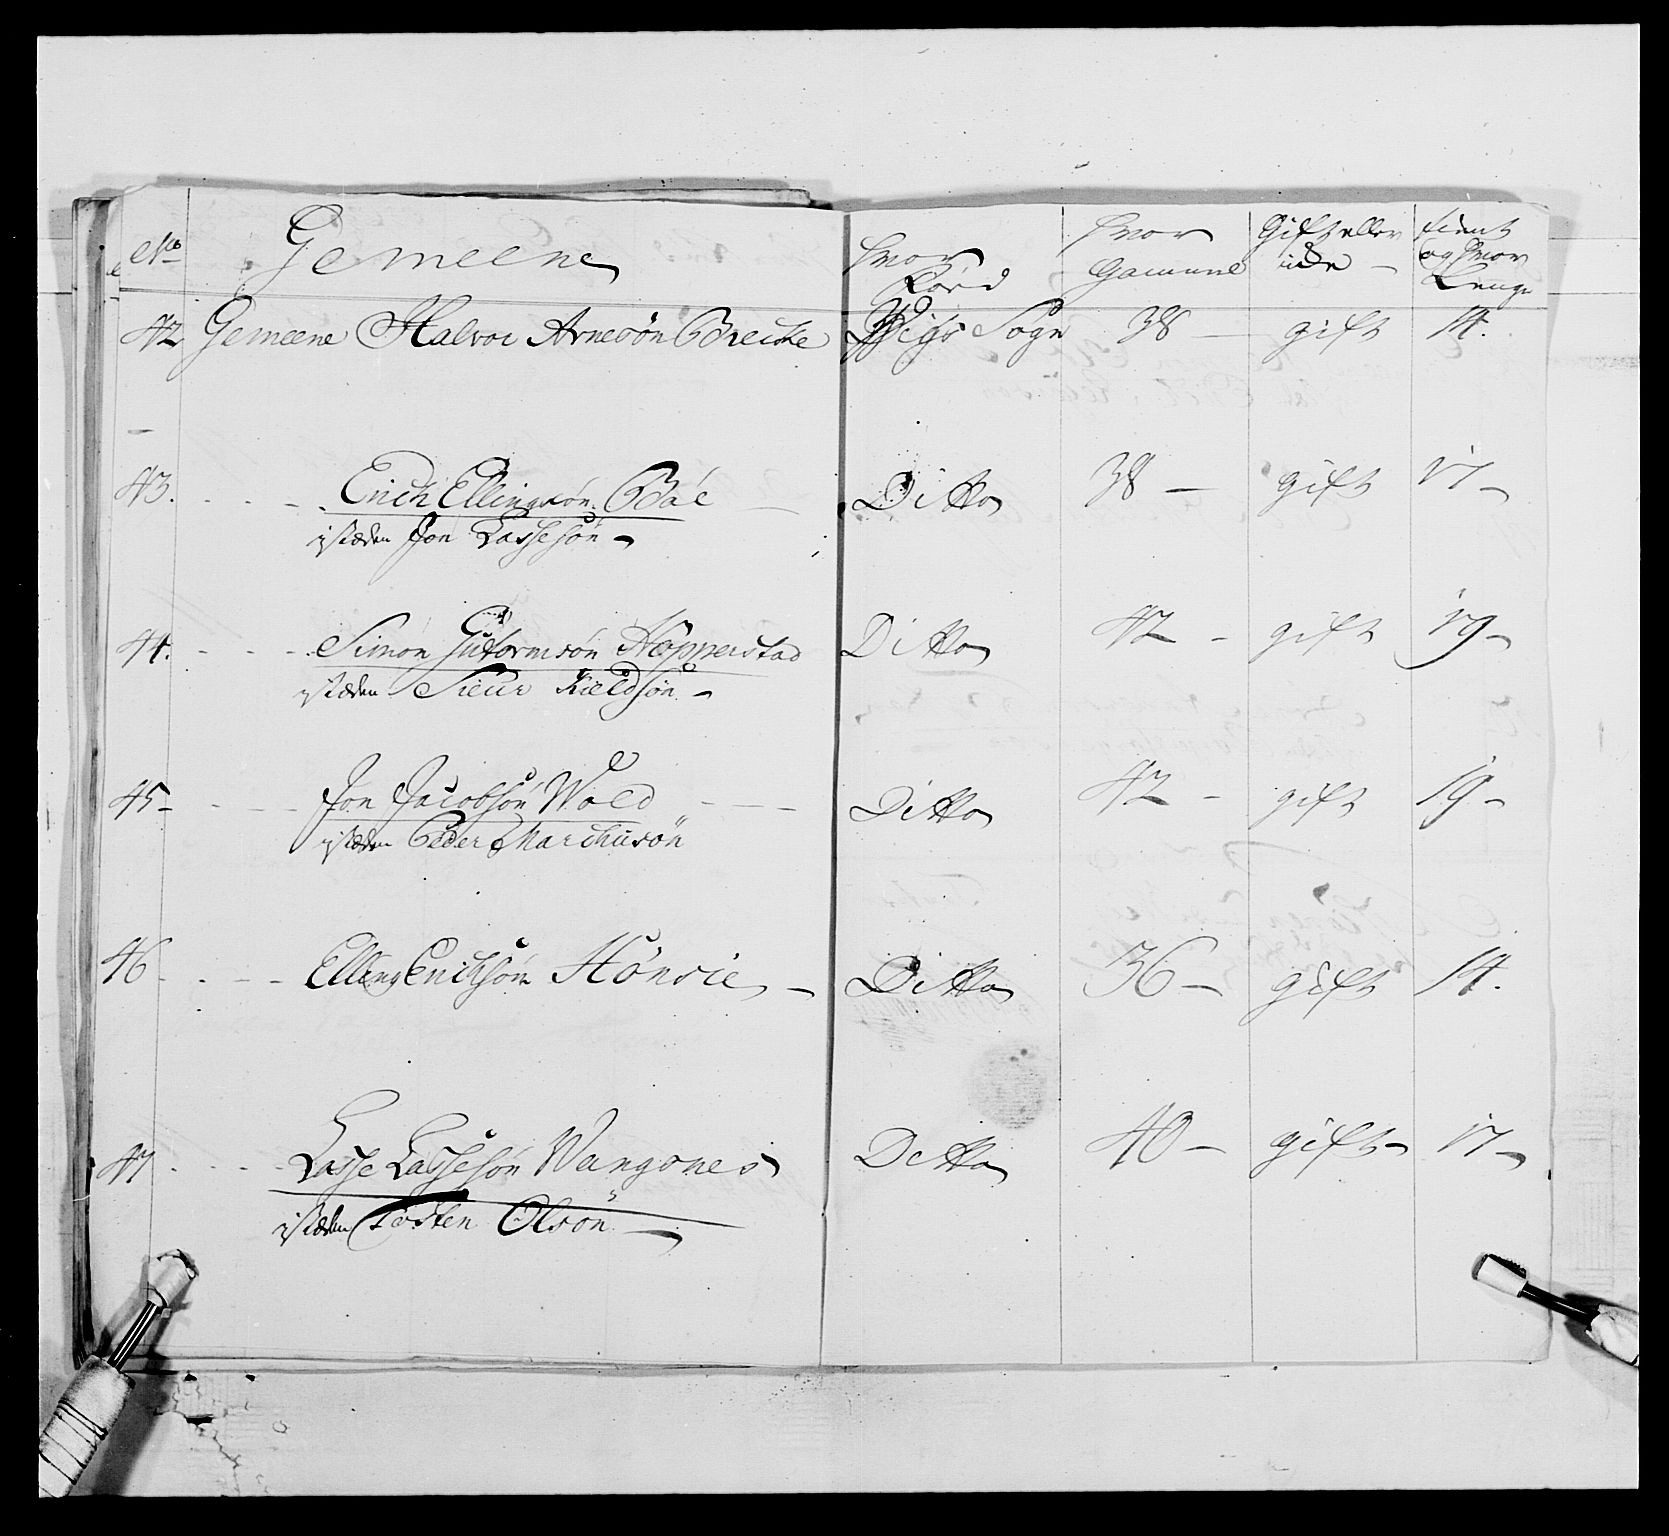 No Gemeene hvor FØed hvor Gammel Gift eller icke tient og hvor Lenge
42 Gemeene Halvor Arnesön Brecke Wigs Sogn 38 gift 14.
43. Erich Ellingsön Böe Ditto 38 gift 17
istæden Jon Lassesön
44. Simon Gutormsön Hopperstad Ditto 42 gift 19
istæden Siur Kieldsön
45 Jon Jacobsön Wold Ditto 42 gift 19
istæden Peder Marchusön
46 Elling Erichsön Hönsie Ditto 36 gift 14.
47 Lasse Lassesön Wangsnes Ditto 40 gift 17
istæden Tosten Olsön